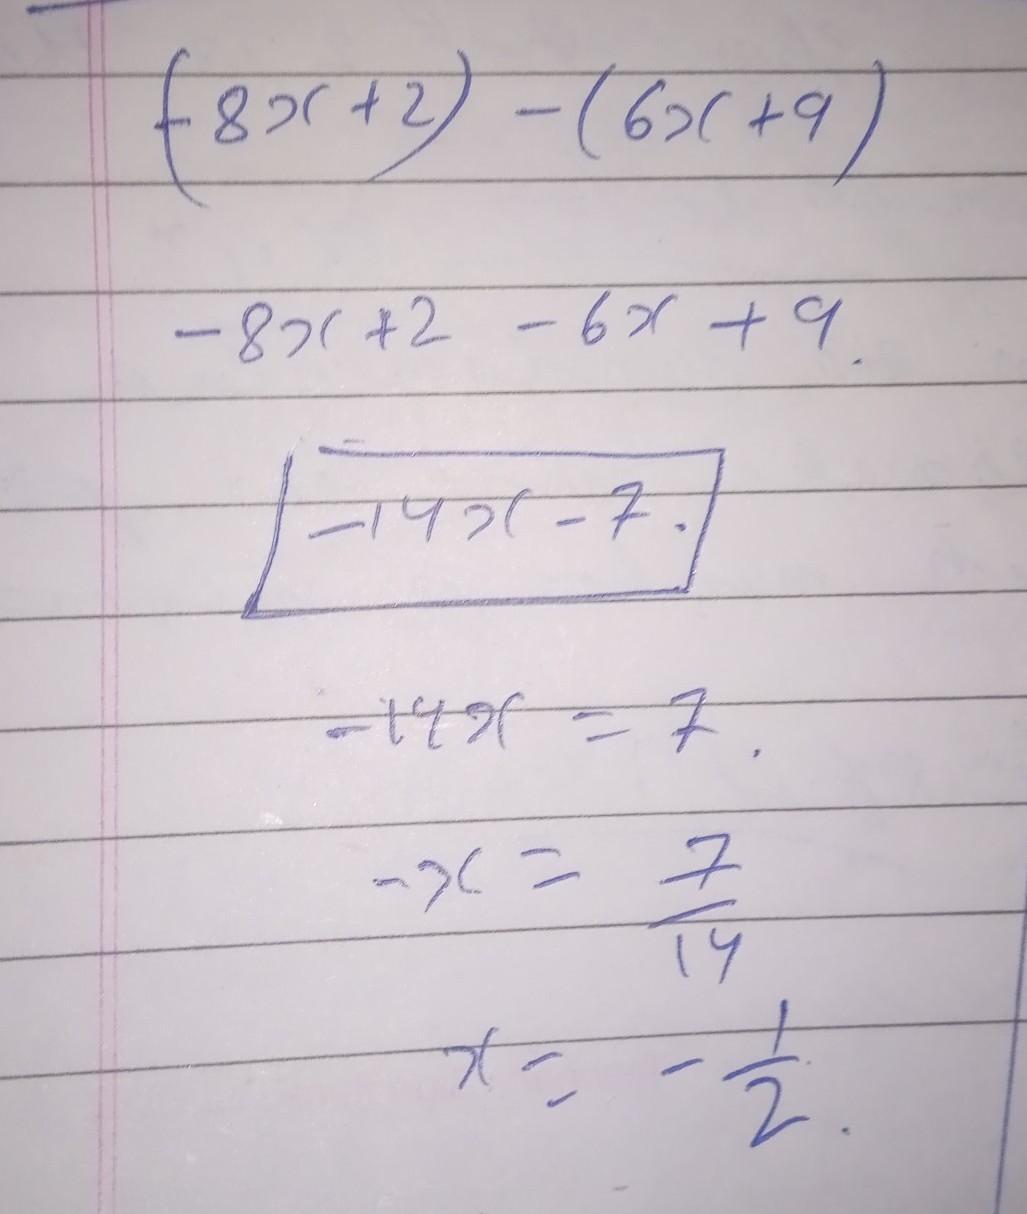 (-8x+2) -(6x+9)
-8x+2 -6x +9.
-14x-7.
-14x = 7.
-x = 7/14
x = -1/2.